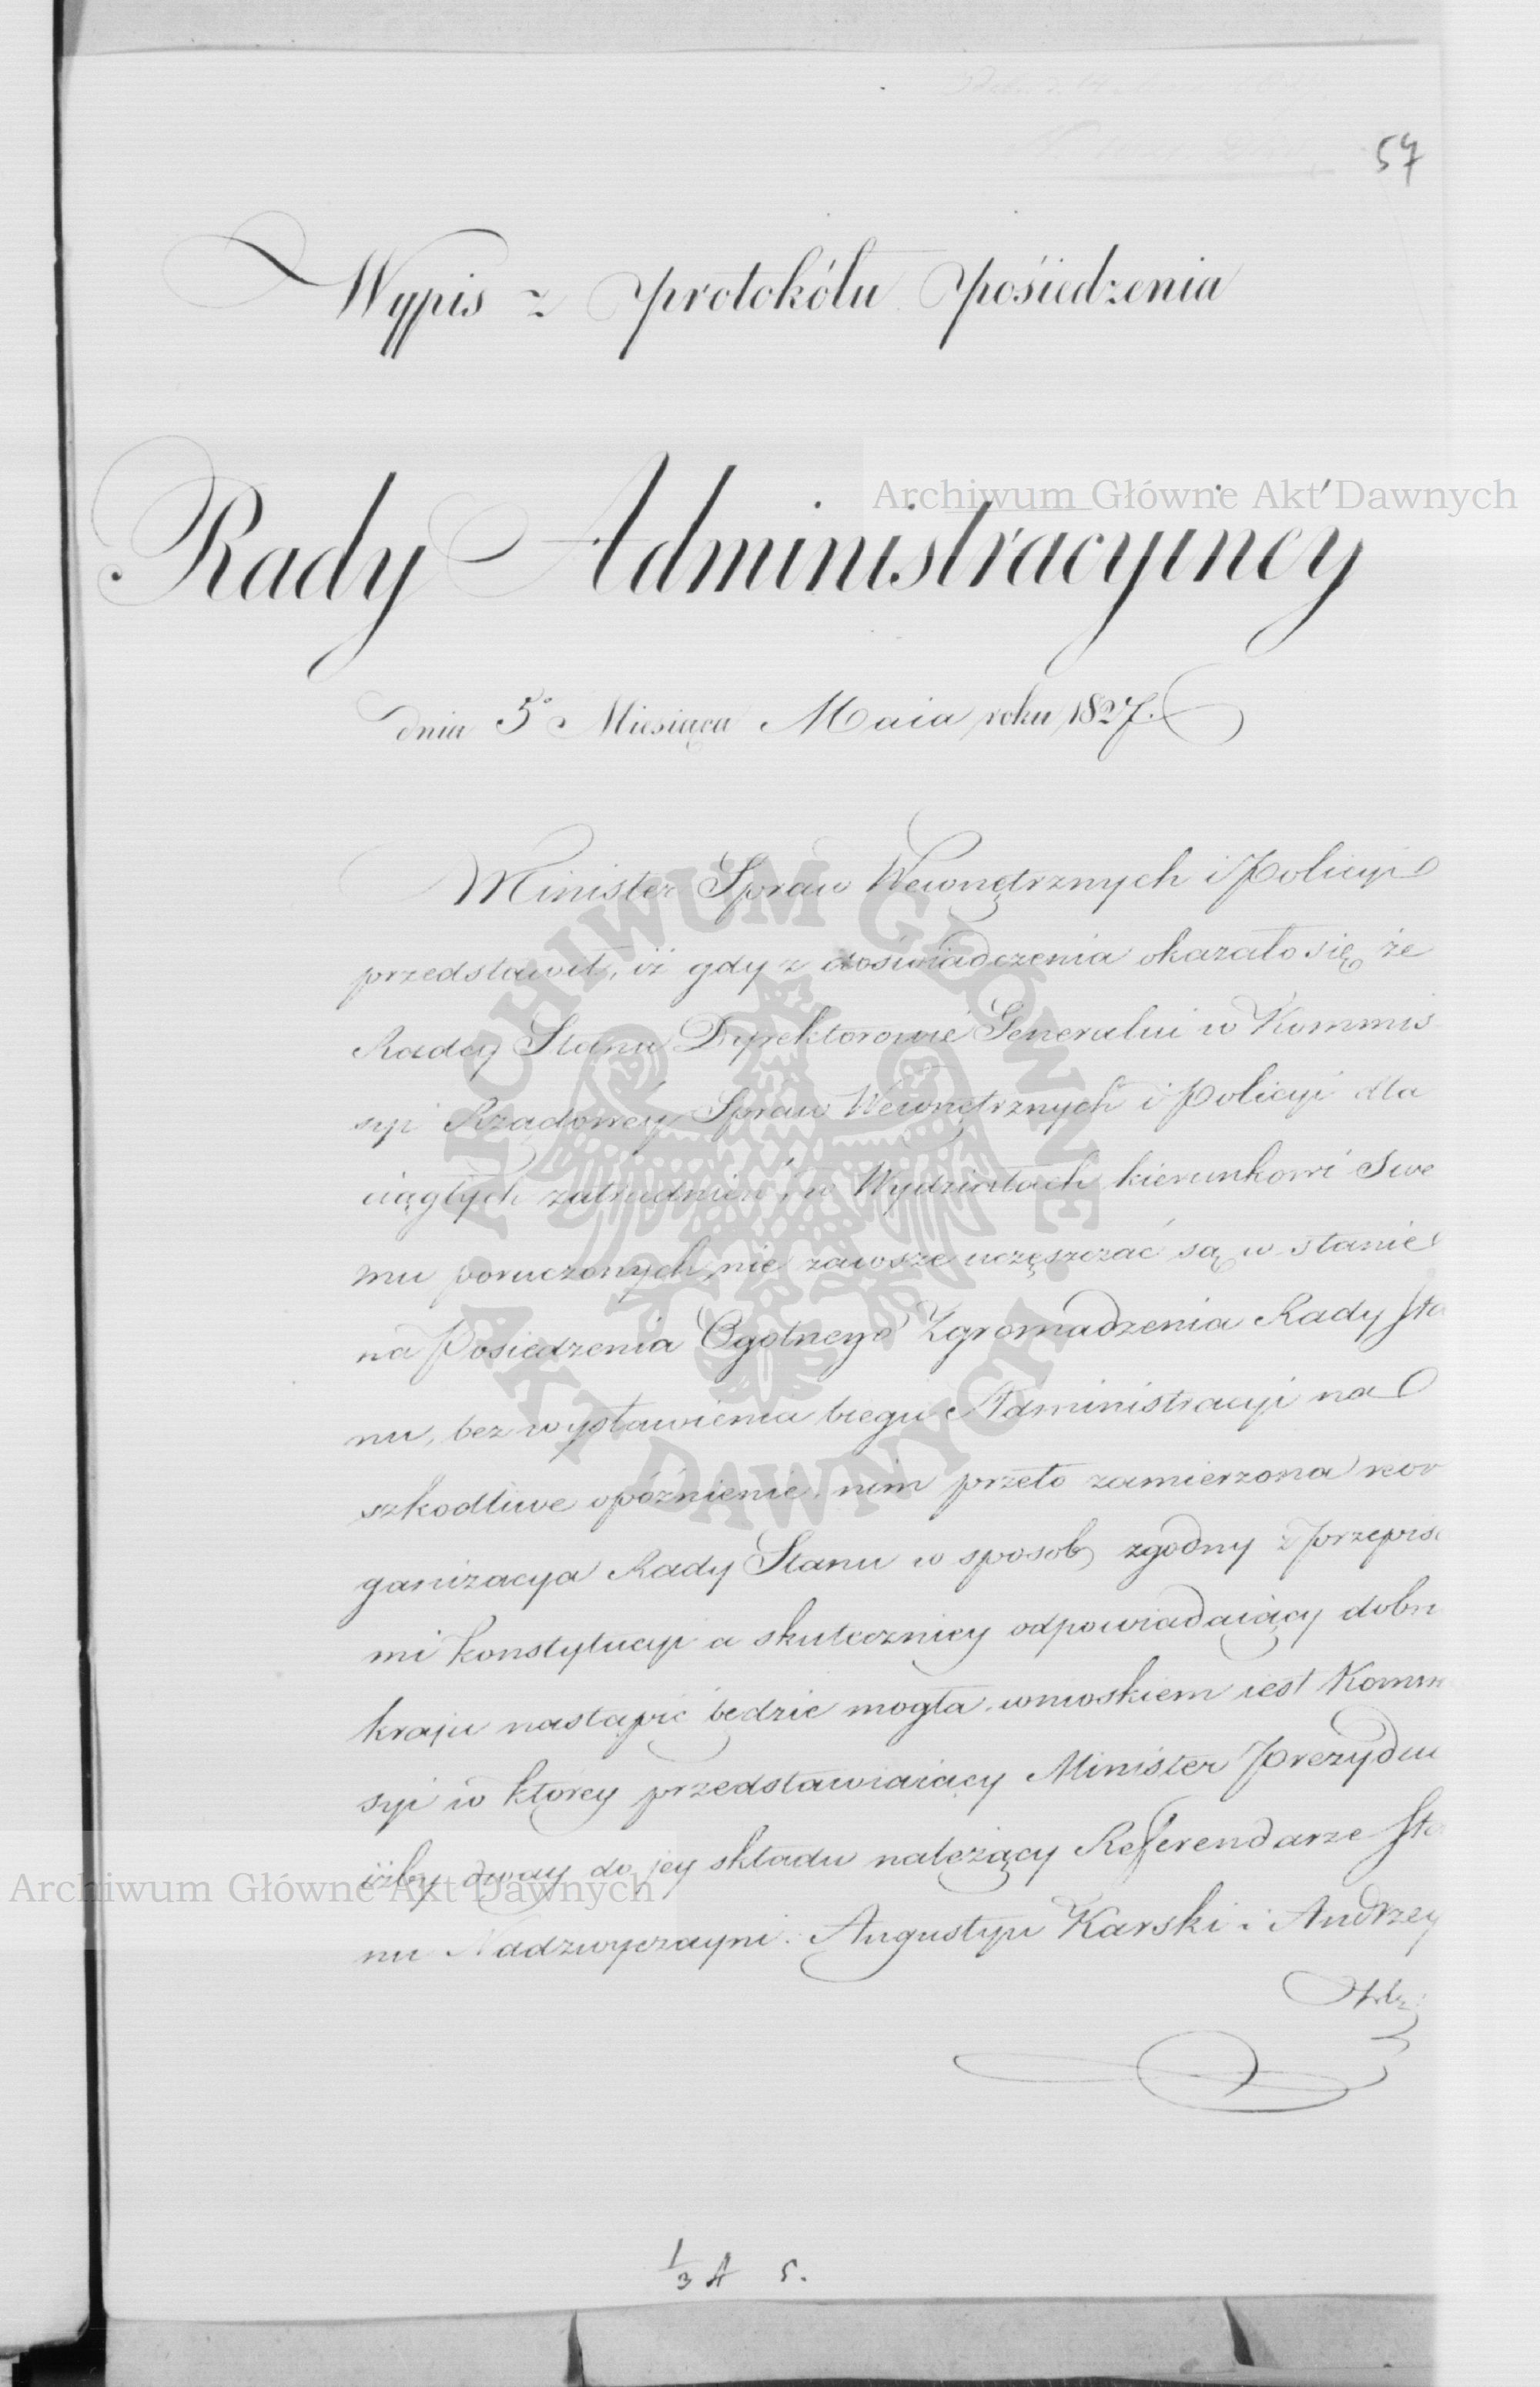 57
Wypis z protokółu pośiedzenia
Rady Administracyiney
dnia 5º Miesiąca Maia roku 1827.
Minister Spraw Wewnętrznych i Policyi
przedstawił, iż gdy z doświadczenia okazało się że
Radcy Stanu Dyrektorowie Generalni w Kommis
syi Rządowey Spraw Wewnętrznych i Policyi dla
ciągłych zatrudnień, w Wydziałach kierunkowi Swe
mu poruczonych, nie zawsze uczęszczać są w stanie
na Posiedzenia Ogolnego Zgromadzenia Rady Sta
nu, bez wystawienia biegu Administracyi na
szkodliwe opóźnienie, nim przeto zamierzona reor
ganizacya Rady Stanu w sposob zgodny z Przepisa
mi Konstytucyi a skuteczniey odpowiadaiący dobru
kraju nastąpić będzie mogła, wnioskiem iest Kommis
syi w ktorey przedstawiaiący Minister Prezydu
iżby dway do jey składu należący Referendarze Sta
nu Nadzwyczayni: Augustyn Karski i Andrzey
1/3 A 5.
Archiwum Główne Akt Dawnych
Archiwum Główne Akt Dawnych
ARCHIWUM GŁÓWNE
AKT DAWNYCH